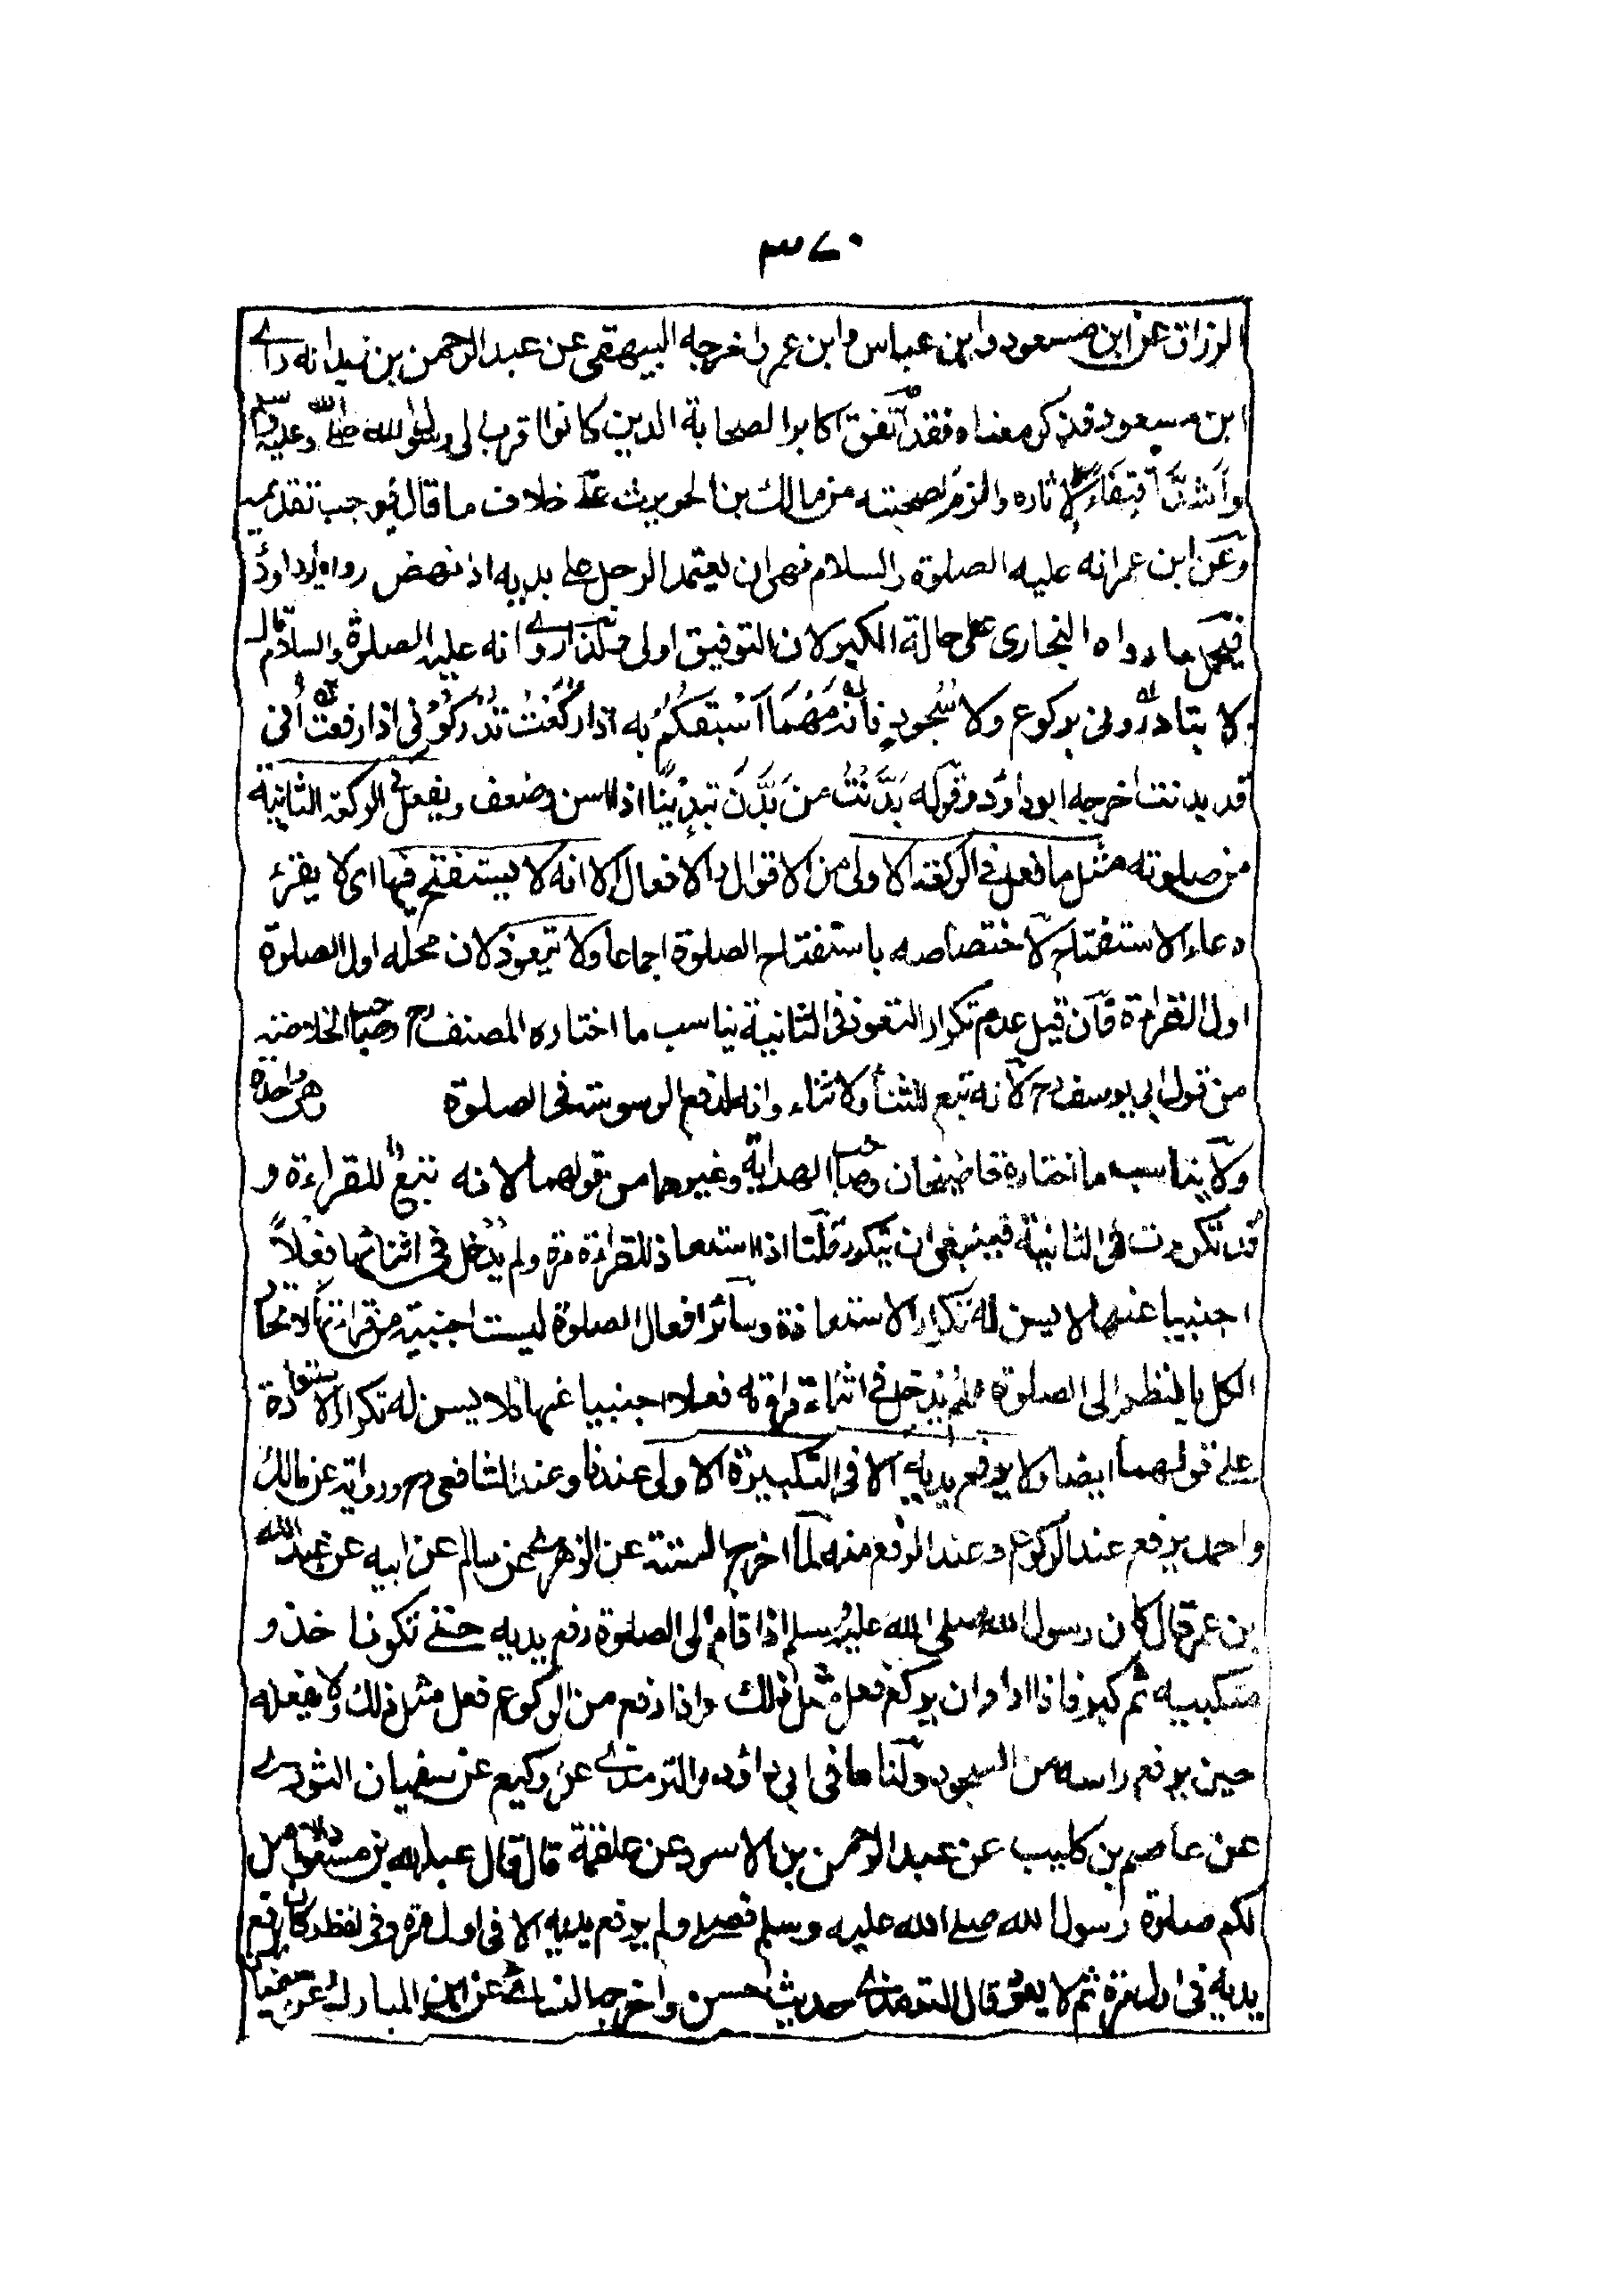 ٣٧٠
الرزاق عن ابن مسعود وابن عباس وابن عمر واخرجه البيهقى عن عبد الرحمن بن يزيد انه رأے
ابن مسعود فذكر معناه فقد اتفق اكابر الصحابة الذين كانوا اقرب الى رسول الله صلى الله عليه وسلم
وَاَشَدَّ اقتِفَاءً لاثاره والزم لصحبته من مالك بن الحويرث على خلاف ما قال فوجب تقديمه
وَعَن ابن عمر انه عليه الصلوة والسلام نهى ان يعتمد الرجل على يديه اذ نهض رواه ابو داود
فيحمل ما رواه البخارى على حالة الكبر لان التوفيق اولى ولذا روے انه عليه الصلوة والسلام قال
لا تبادرونى بركوع ولا سُجودٍ فانه مَهْمَا اَسْبقكُم به اذا ركَعْتُ تُدْرِكُوْنى اذا رفعت اُنى
قد بدنت اخرجه ابو داود وقوله بَدَّنْتُ من بَدَّنَ تبدِيْنًا اذا اسن وضعف ويفعل فى الركعة الثانية
من صلوته مثل ما فعل فى الركعة الاولى من الاقوال والافعال الا انه لا يستفتح فيها اى لا يقرء
دعاء الاستفتاح لاختصاصه باستفتاح الصلوة اجماعا ولا يتعوذ لان محله اول الصلوة
اول القراءة فان قيل عدم تكرار التعوذ فى الثانية يناسب ما اختاره المصنف رح وصاحب الخلاصة
من قول ابى يوسف رح لانه تبع للثناء ولا ثناء وانه لدفع الوسوسة فى الصلوة وهى واحدة
ولا يناسب ما اختاره قاضيخان وصاحب الهداية وغيرهما من قولهما لانه تبعٌ للقراءة و
قد تكررت فى الثانية فينبغى ان يتكرر قلنا اذا استعاذ للقراءة مرة ولم يُدْخل فى اثنائها فعْلاً
اجنبيا عنها لا يسن له تكرار الاستعاذة وسائر افعال الصلوة ليست اجنبية من قراءتها لاتحاد
الكل بالنظر الى الصلوة فلم يدخل فى اثناء قراءته فعلا اجنبيا عنها فلا يسن له تكرار الاستعاذة
على قولهما ايضا ولا يرفع يديه الا فى التكبيرة الاولى عندنا وعند الشافعى رح ورواية عن مالك
واحمد يرفع عند الركوع وعند الرفع منه لما اخرج الستة عن الزهرے عن سالم عن ابيه عن عبد الله
بن عمر قال كان رسول الله صلى الله عليه وسلم اذا قام الى الصلوة رفع يديه حتى تكونا حذو
منكبيه ثم كبر فاذا اراد ان يركع فعل مثل ذلك واذا رفع من الركوع فعل مثل ذلك ولا يفعله
حين يرفع راسه من السجود ولنا ما فى ابى داؤد والترمذے عن وكيع عن سفيان الثورے
عن عاصم بن كليب عن عبد الرحمن بن الاسود عن علقمة قال قال عبد الله بن مسعود الا اصلى
لكم صلوة رسول الله صلے الله عليه وسلم فصلے ولم يرفع يديه الا فى اول مرة وفى لفظ كان يرفع
يديه فى اول مرة ثم لا يعود قال الترمذے حديث حسن واخرجه النسائے عن ابن المبارك عن سفيان